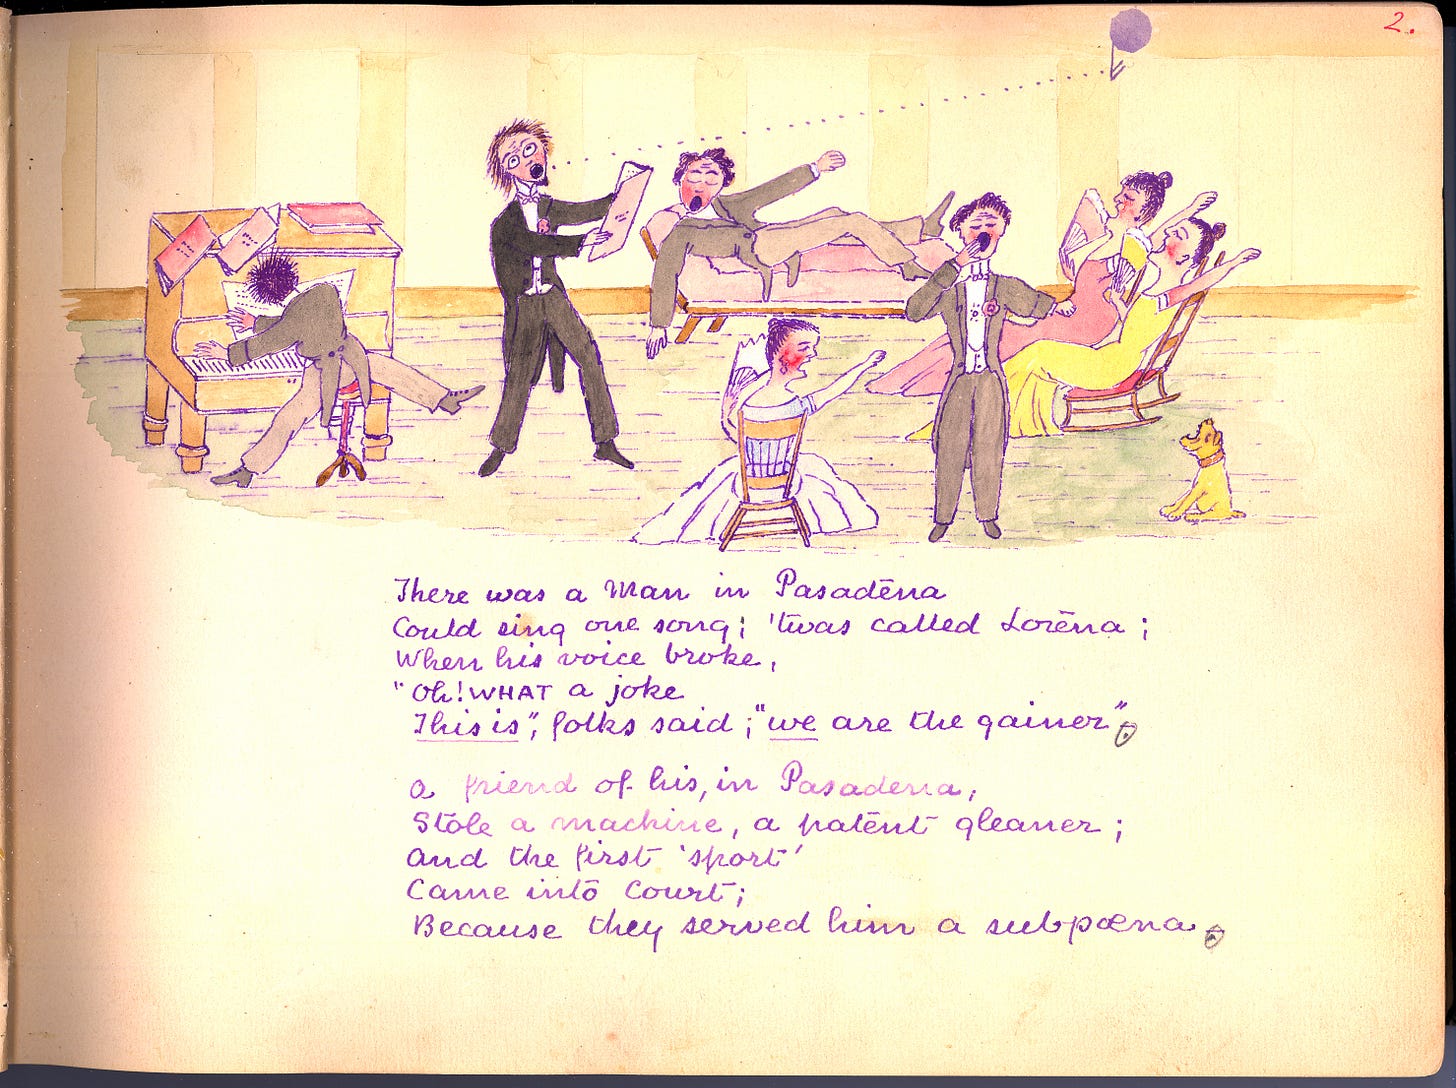 2.
There was a Man in Pasadēna
Could sing one song; 'twas called Lorēna;
When his voice broke,
"Oh! WHAT a joke
This is", folks said; "we are the gainer".
A friend of his, in Pasadena,
Stole a machine, a patent gleaner;
And the first 'sport'
Came into Court;
Because they served him a subpœna.